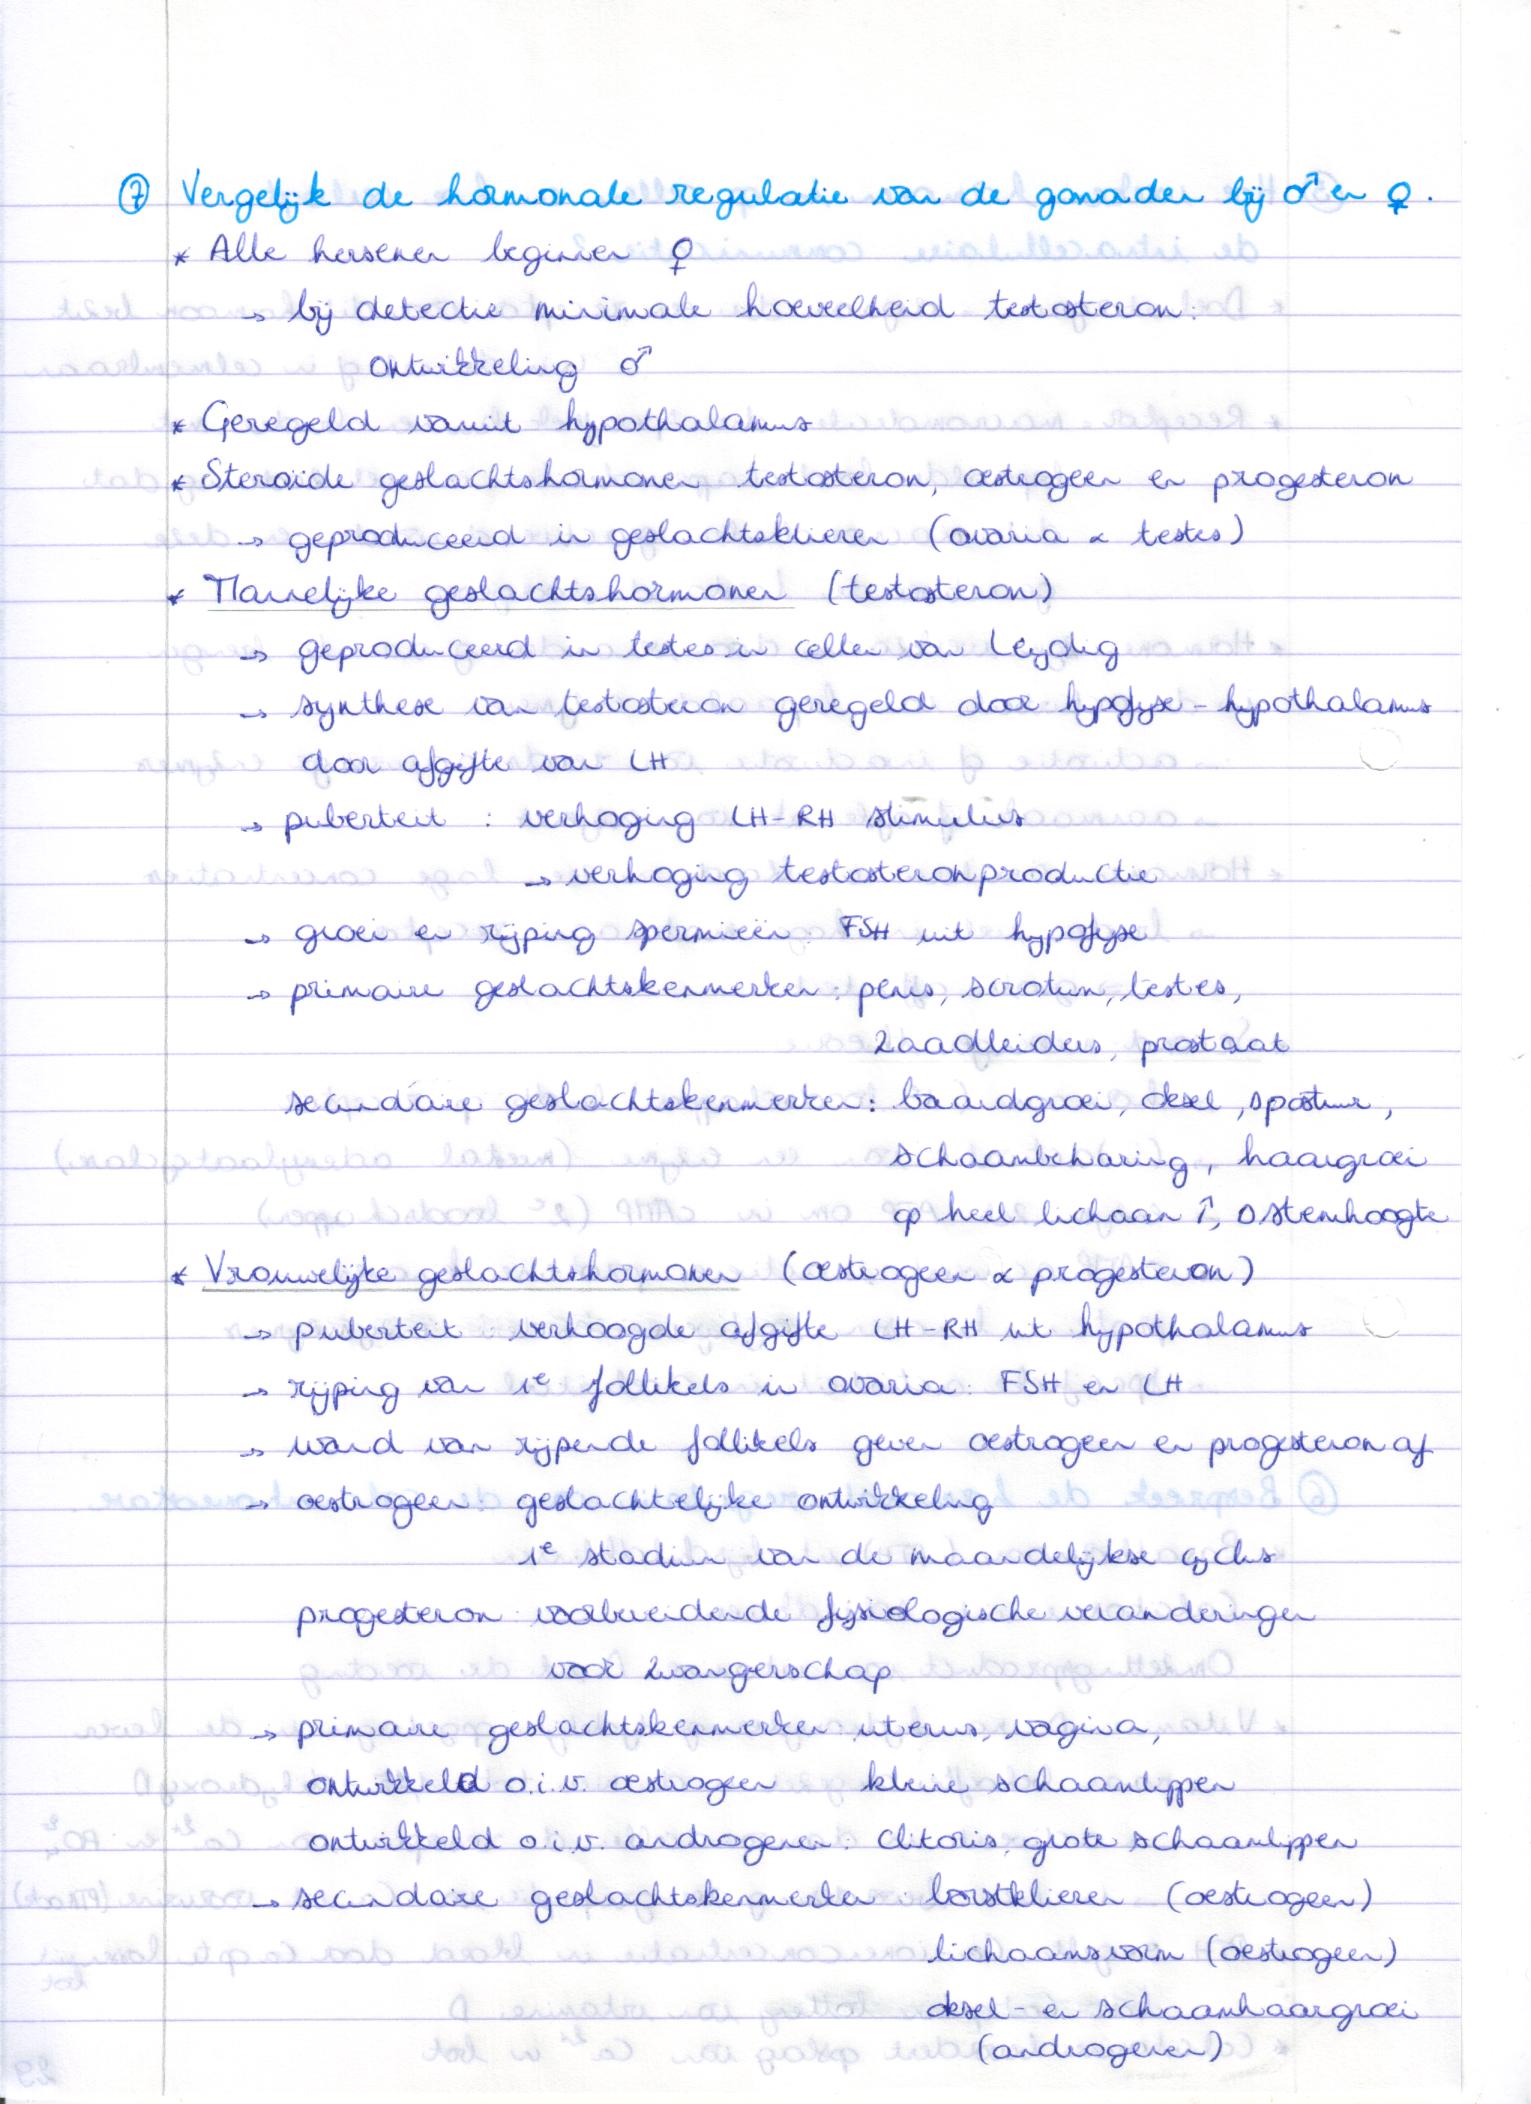 ⑦ Vergelijk de hormonale regulatie van de gonaden bij ♂ en ♀.
* Alle hersenen beginnen ♀
→ bij detectie minimale hoeveelheid testosteron:
ontwikkeling ♂
* Geregeld vanuit hypothalamus
* Steroïde geslachtshormonen testosteron, oestrogeen en progesteron
→ geproduceerd in geslachtsklieren (ovaria & testes)
* Mannelijke geslachtshormonen (testosteron)
→ geproduceerd in testes in cellen van Leydig
→ synthese van testosteron geregeld door hypofyse - hypothalamus
door afgifte van LH
→ puberteit : verhoging LH-RH stimulus
→ verhoging testosteronproductie
→ groei en rijping spermieën: FSH uit hypofyse
→ primaire geslachtskenmerken: penis, scrotum, testes,
zaadleiders, prostaat
secundaire geslachtskenmerken: baardgroei, oksel, spostuur,
schaambeharing, haargroei
op heel lichaam ↑, Δ stemhoogte
* Vrouwelijke geslachtshormonen (oestrogeen & progesteron)
→ puberteit : verhoogde afgifte LH-RH uit hypothalamus
→ rijping van 1e follikels in ovaria: FSH en LH
→ wand van rijpende follikels geven oestrogeen en progesteron af
→ oestrogeen: geslachtelijke ontwikkeling
1e stadium van de maandelijkse cyclus
progesteron: voorbereidende fysiologische veranderingen
voor zwangerschap
→ primaire geslachtskenmerken: uterus, vagina,
ontwikkeld o.i.v. oestrogeen kleine schaamlippen
ontwikkeld o.i.v. androgenen: clitoris, grote schaamlippen
→ secundaire geslachtskenmerken: borstklieren (oestrogeen)
lichaamsvorm (oestrogeen)
oksel- en schaamhaargroei
(androgenen)